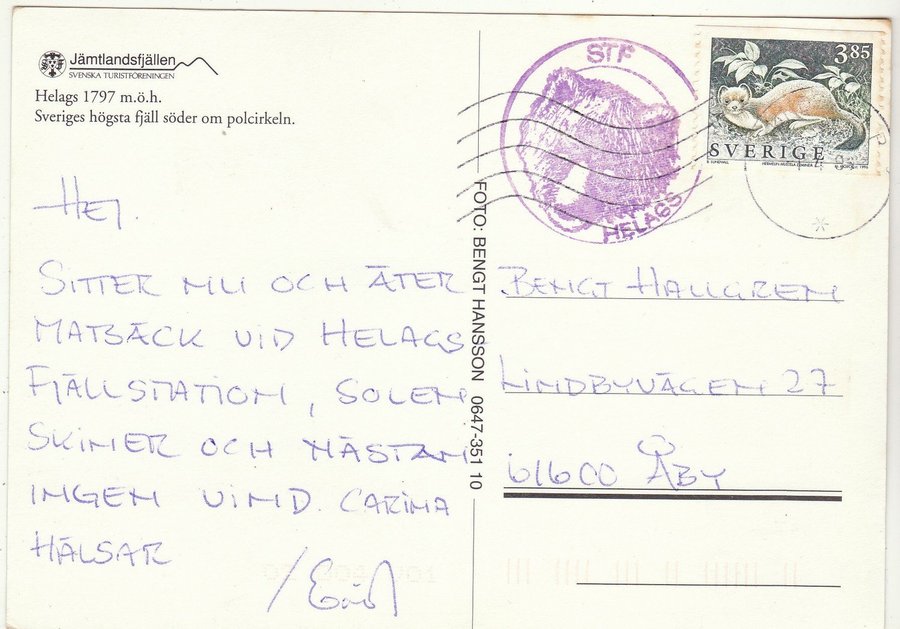 Jämtlandsfjällen
SVENSKA TURISTFÖRENINGEN
Helags 1797 m.ö.h.
Sveriges högsta fjäll söder om polcirkeln.
HEJ.
SITTER NU OCH ÄTER
MATSÄCK VID HELAGS
FJÄLLSTATION, SOLEN
SKINER OCH NÄSTAN
INGEN VIND. CARINA
HÄLSAR
FOTO: BENGT HANSSON 0647-351 10
STF
HELAGS
3.85
SVERIGE
BENGT HALLGREN
LINDBYVÄGEN 27
61600 ÅBY